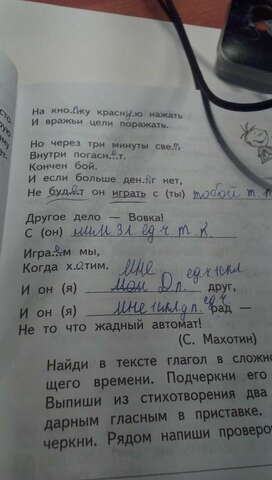 На кно.пку красну.ю нажать
И вражьи цели поражать.
Но через три минуты све.т
Внутри погасн.е.т.
Кончен бой.
И если больше ден.е.г нет,
Не буд.е.т он играть с (ты) тобой т. п.
Другое дело — Вовка!
С (он) ним 3л ед ч т п.
Игра.е.м мы,
Когда х.о.тим.
И он (я) мне Д п. ед ч 1 л друг,
И он (я) мне 1 л д п. ед ч рад —
Не то что жадный автомат!
(С. Махотин)
Найди в тексте глагол в сложно
щего времени. Подчеркни его
Выпиши из стихотворения два
дарным гласным в приставке.
черкни. Рядом напиши проверо